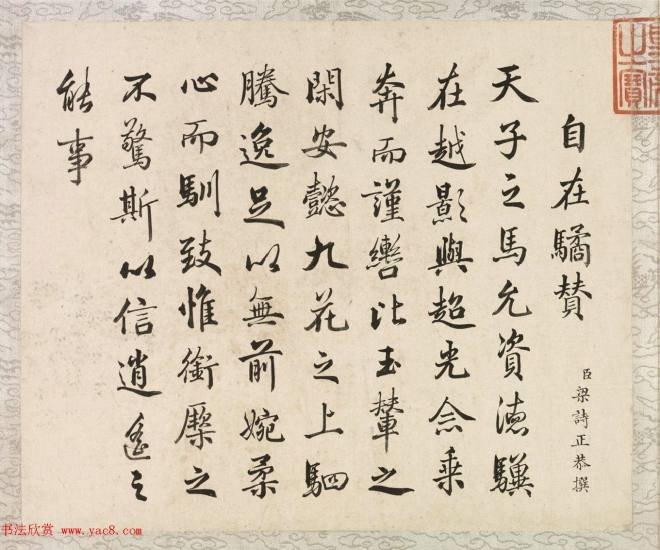 自在驈贊
臣梁詩正恭撰
天子之馬允資德驥
在越影與超光念乘
奔而謹轡比玉輦之
閑安懿九花之上駟
騰逸足以無前婉柔
心而馴致惟銜橜之
不驚斯以信逍遙之
能事
之寶
书法欣赏 www.yac8.com